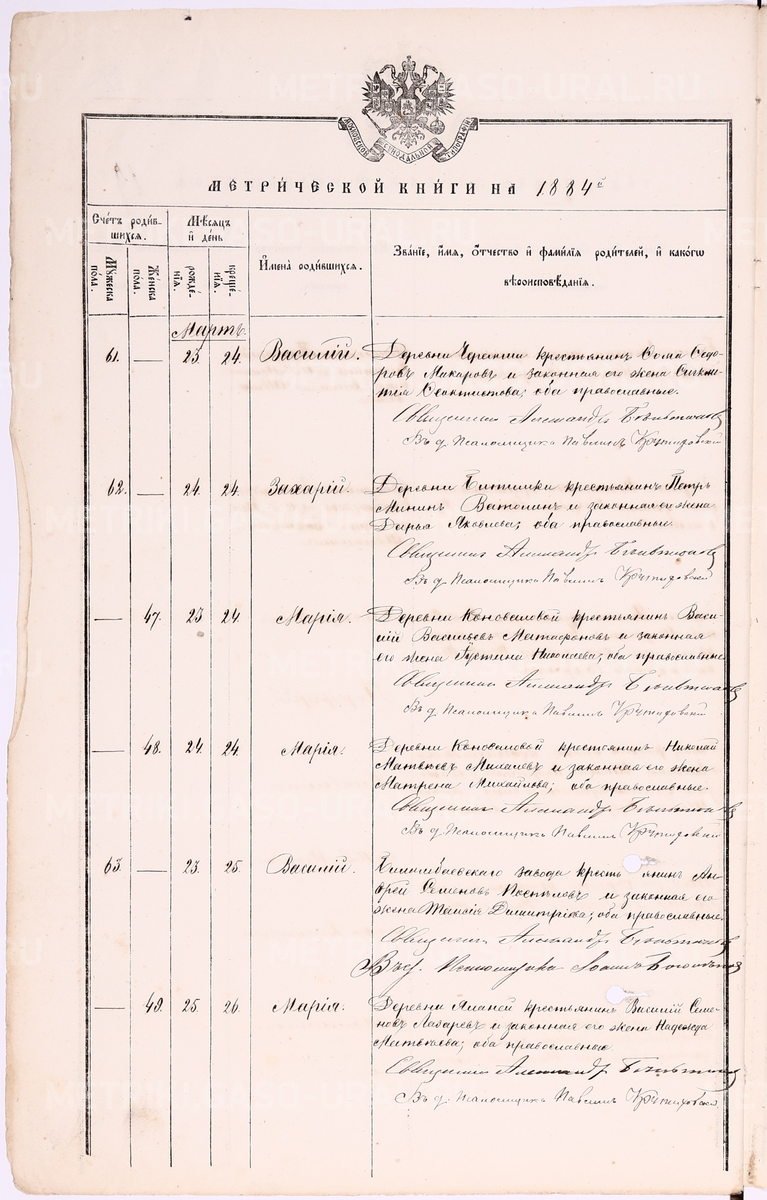 МОСКОВСКОЙ СѴНОДАЛЬНОЙ ТИПОГРАФІИ
МЕТРИЧЕСКОЙ КНИГИ НА 1884 й
Счетъ родив-
шихся.
Мѣсяцъ
и день
Мужеска
пола.
Женска
пола.
рожде-
нія.
креще-
нія.
Имена родившихся.
Званіе, имя, отчество и фамилія родителей, и какогѡ
вѣроисповѣданія.
Мартъ
61. — 23 24. Василій. Деревни крестьянинъ Ѳома Ѳедо-
ровъ Макаровъ и законная его жена
Ѳеоктистова; оба православные.
Священникъ Александръ
Въ д. Псаломщика Павелъ
62. — 24. 24. Захарій. Деревни крестьянинъ Петръ
Мининъ Ватолинъ и законная его жена
Дарья Яковлева; оба православные.
Священникъ Александръ
Въ д. Псаломщика Павелъ
— 47. 23 24. Марія. Деревни Коноваловой крестьянинъ Васи-
лій Васильевъ и законная
его жена Николаева; оба православные
Священникъ Александръ
Въ д. Псаломщика Павелъ
— 48. 24. 24. Марія. Деревни Коноваловой крестьянинъ Николай
Матвѣевъ и законная его жена
Матрена Михайлова; оба православные.
Священникъ Александръ
Въ д. Псаломщика Павелъ
63. — 23. 25. Василій. завода крестьянинъ Ан-
дрей Семеновъ Поспѣловъ и законная его
жена Таисія Димитріева; оба православные.
Священникъ Александръ
Въ д. Псаломщика Іоаннъ
— 49. 25. 26. Марія. Деревни крестьянинъ Василій Семе-
новъ Лазаревъ и законная его жена Надежда
Матвѣева; оба православные.
Священникъ Александръ
Въ д. Псаломщика Павелъ